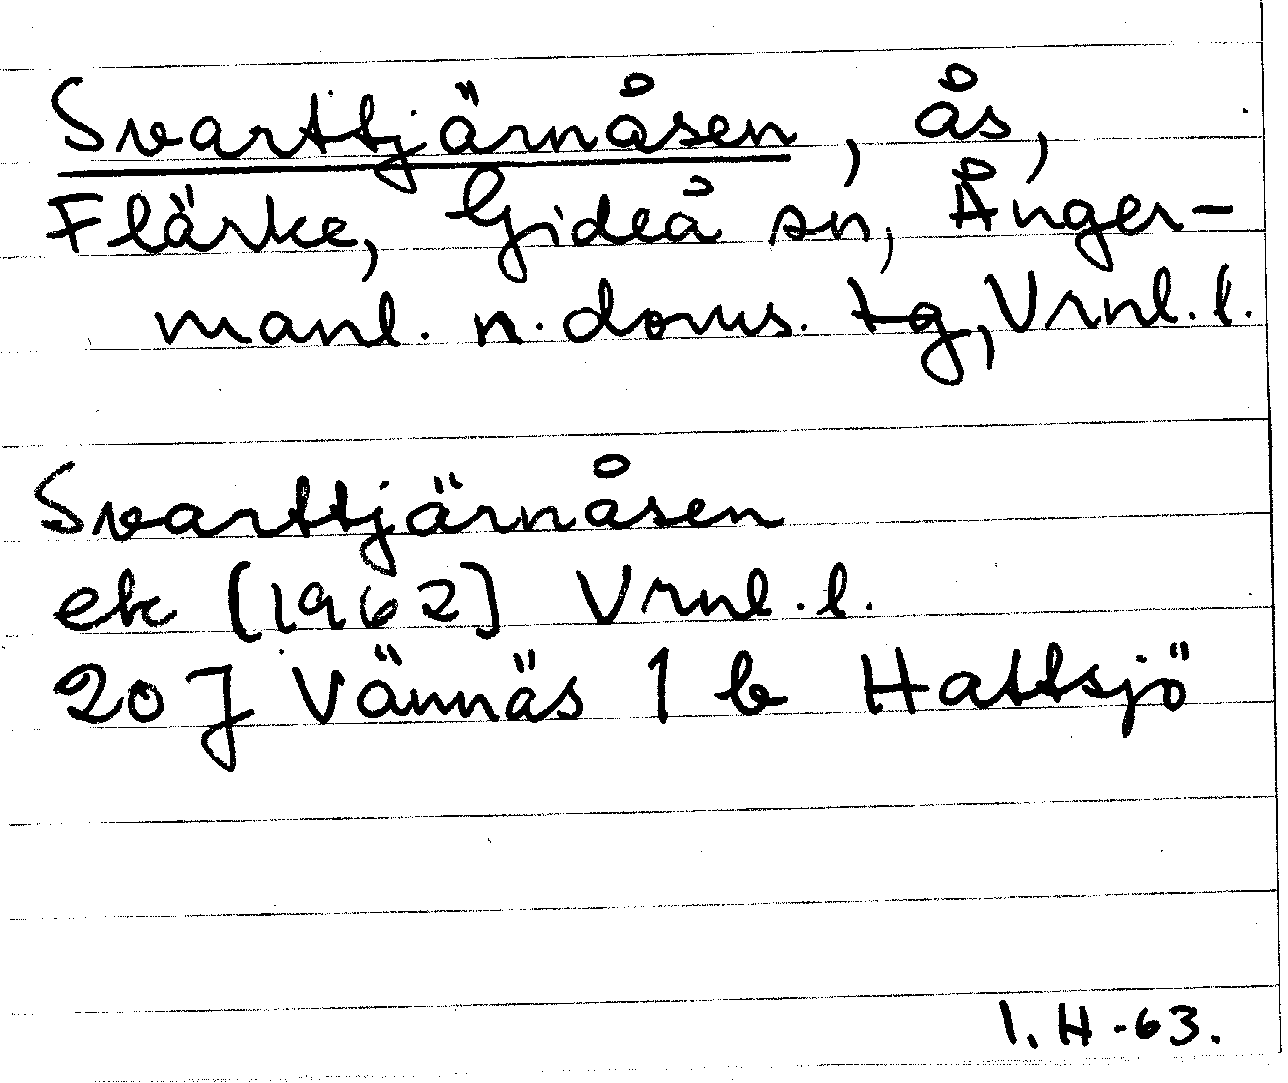 Svarttjärnåsen, ås,
Flärke, Gideå sn, Ånger-
manl. n. doms. tg, Vrnl. l.
Svarttjärnåsen
ek [1962] Vrnl. l.
20 J Vännäs 1 b Hattsjö
I. H -63.